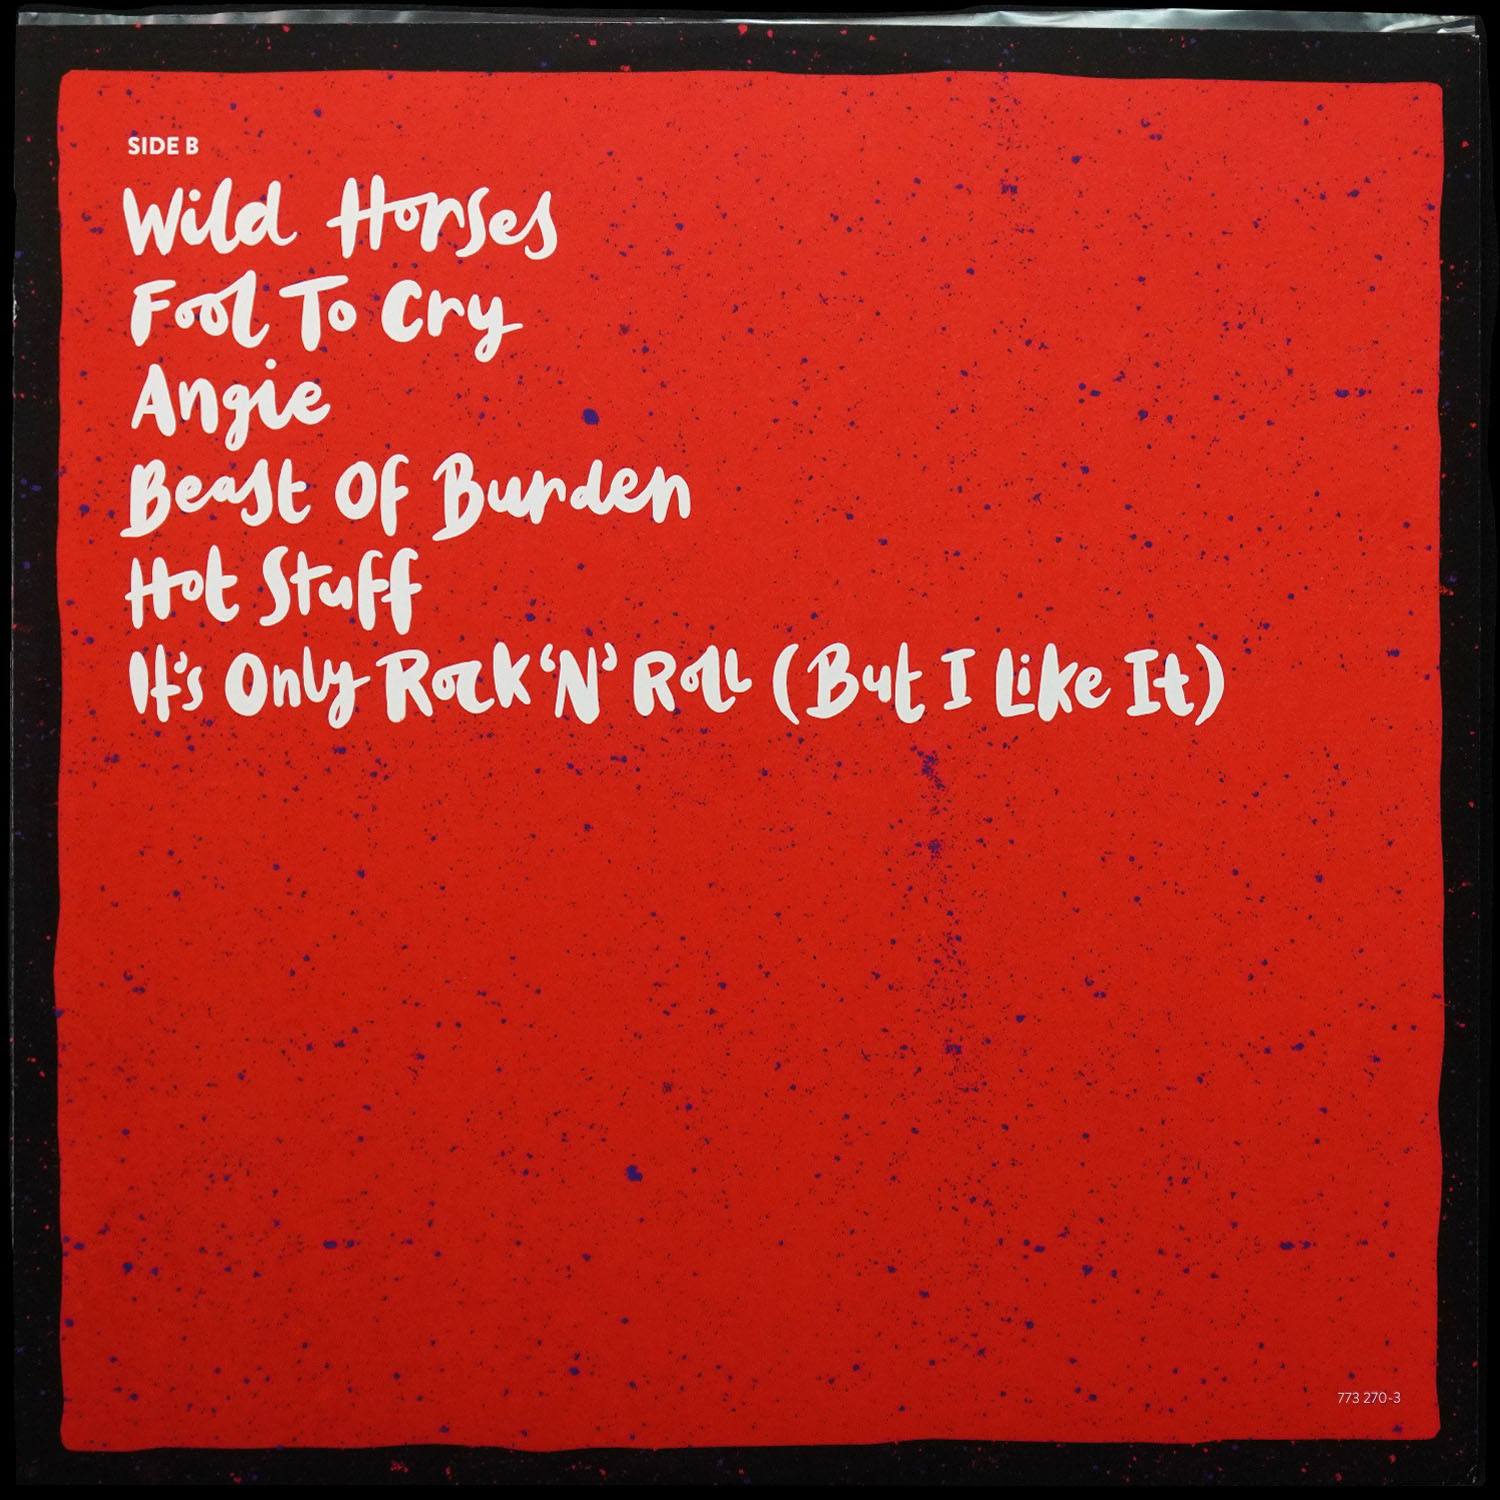 SIDE B
Wild Horses
Fool To Cry
Angie
Beast Of Burden
Hot Stuff
It's Only Rock ‘N’ Roll (But I Like It)
773 270-3